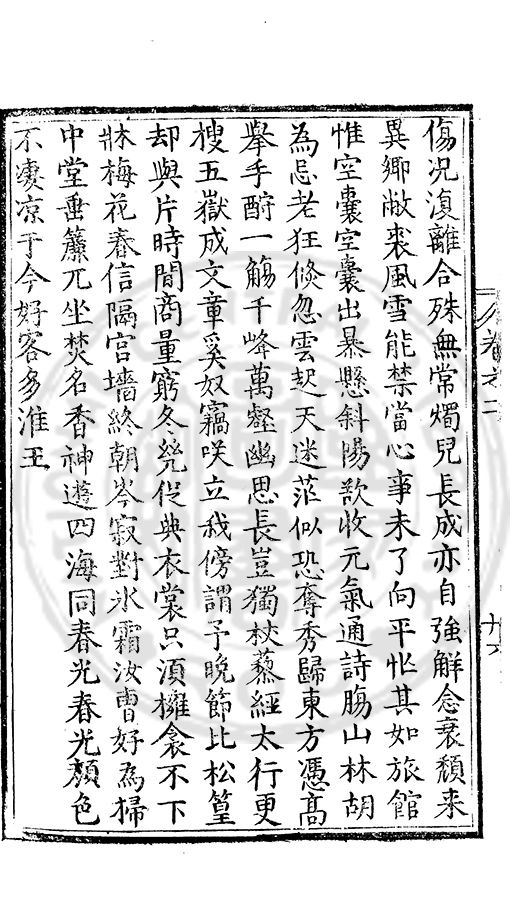 傷况復離合殊無常燭兒長成亦自強解念衰頹来
異鄉敝裘風雪能禁當心事未了向平忙其如旅館
惟空囊空囊出暴懸斜陽歙收元氣通詩腸山林胡
為忌老狂倐忽雲起天迷茫似恐奪秀歸東方憑髙
舉手酹一觴千峰萬壑幽思長豈獨杖藜經太行更
搜五嶽成文章奚奴竊咲立我傍謂予晚節比松篁
却與片時間商量窮冬凳促典衣裳只湏擁衾不下
牀梅花春信隔宫墻終朝岑寂對氷霜汝曹好為掃
中堂垂簾兀坐焚名香神遊四海同春光春光顔色
不凄凉于今好客多淮王
卷之二